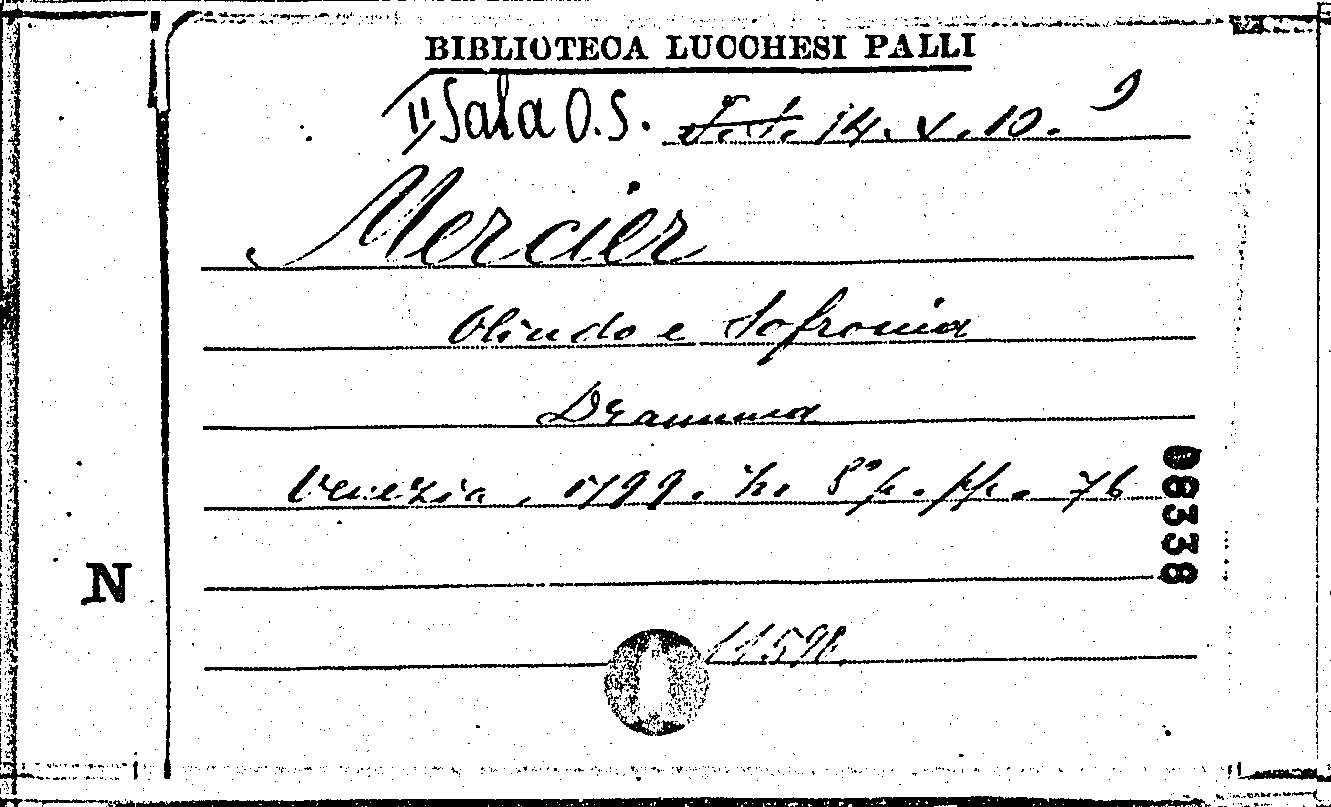 BIBLIOTECA LUCCHESI PALLI
II Sala O.S. 14. V. 10. 9
Mercier
Olindo e Sofronia
Dramma
Venezia, 1799. In 8° p. pp. 76
08338
N
11598